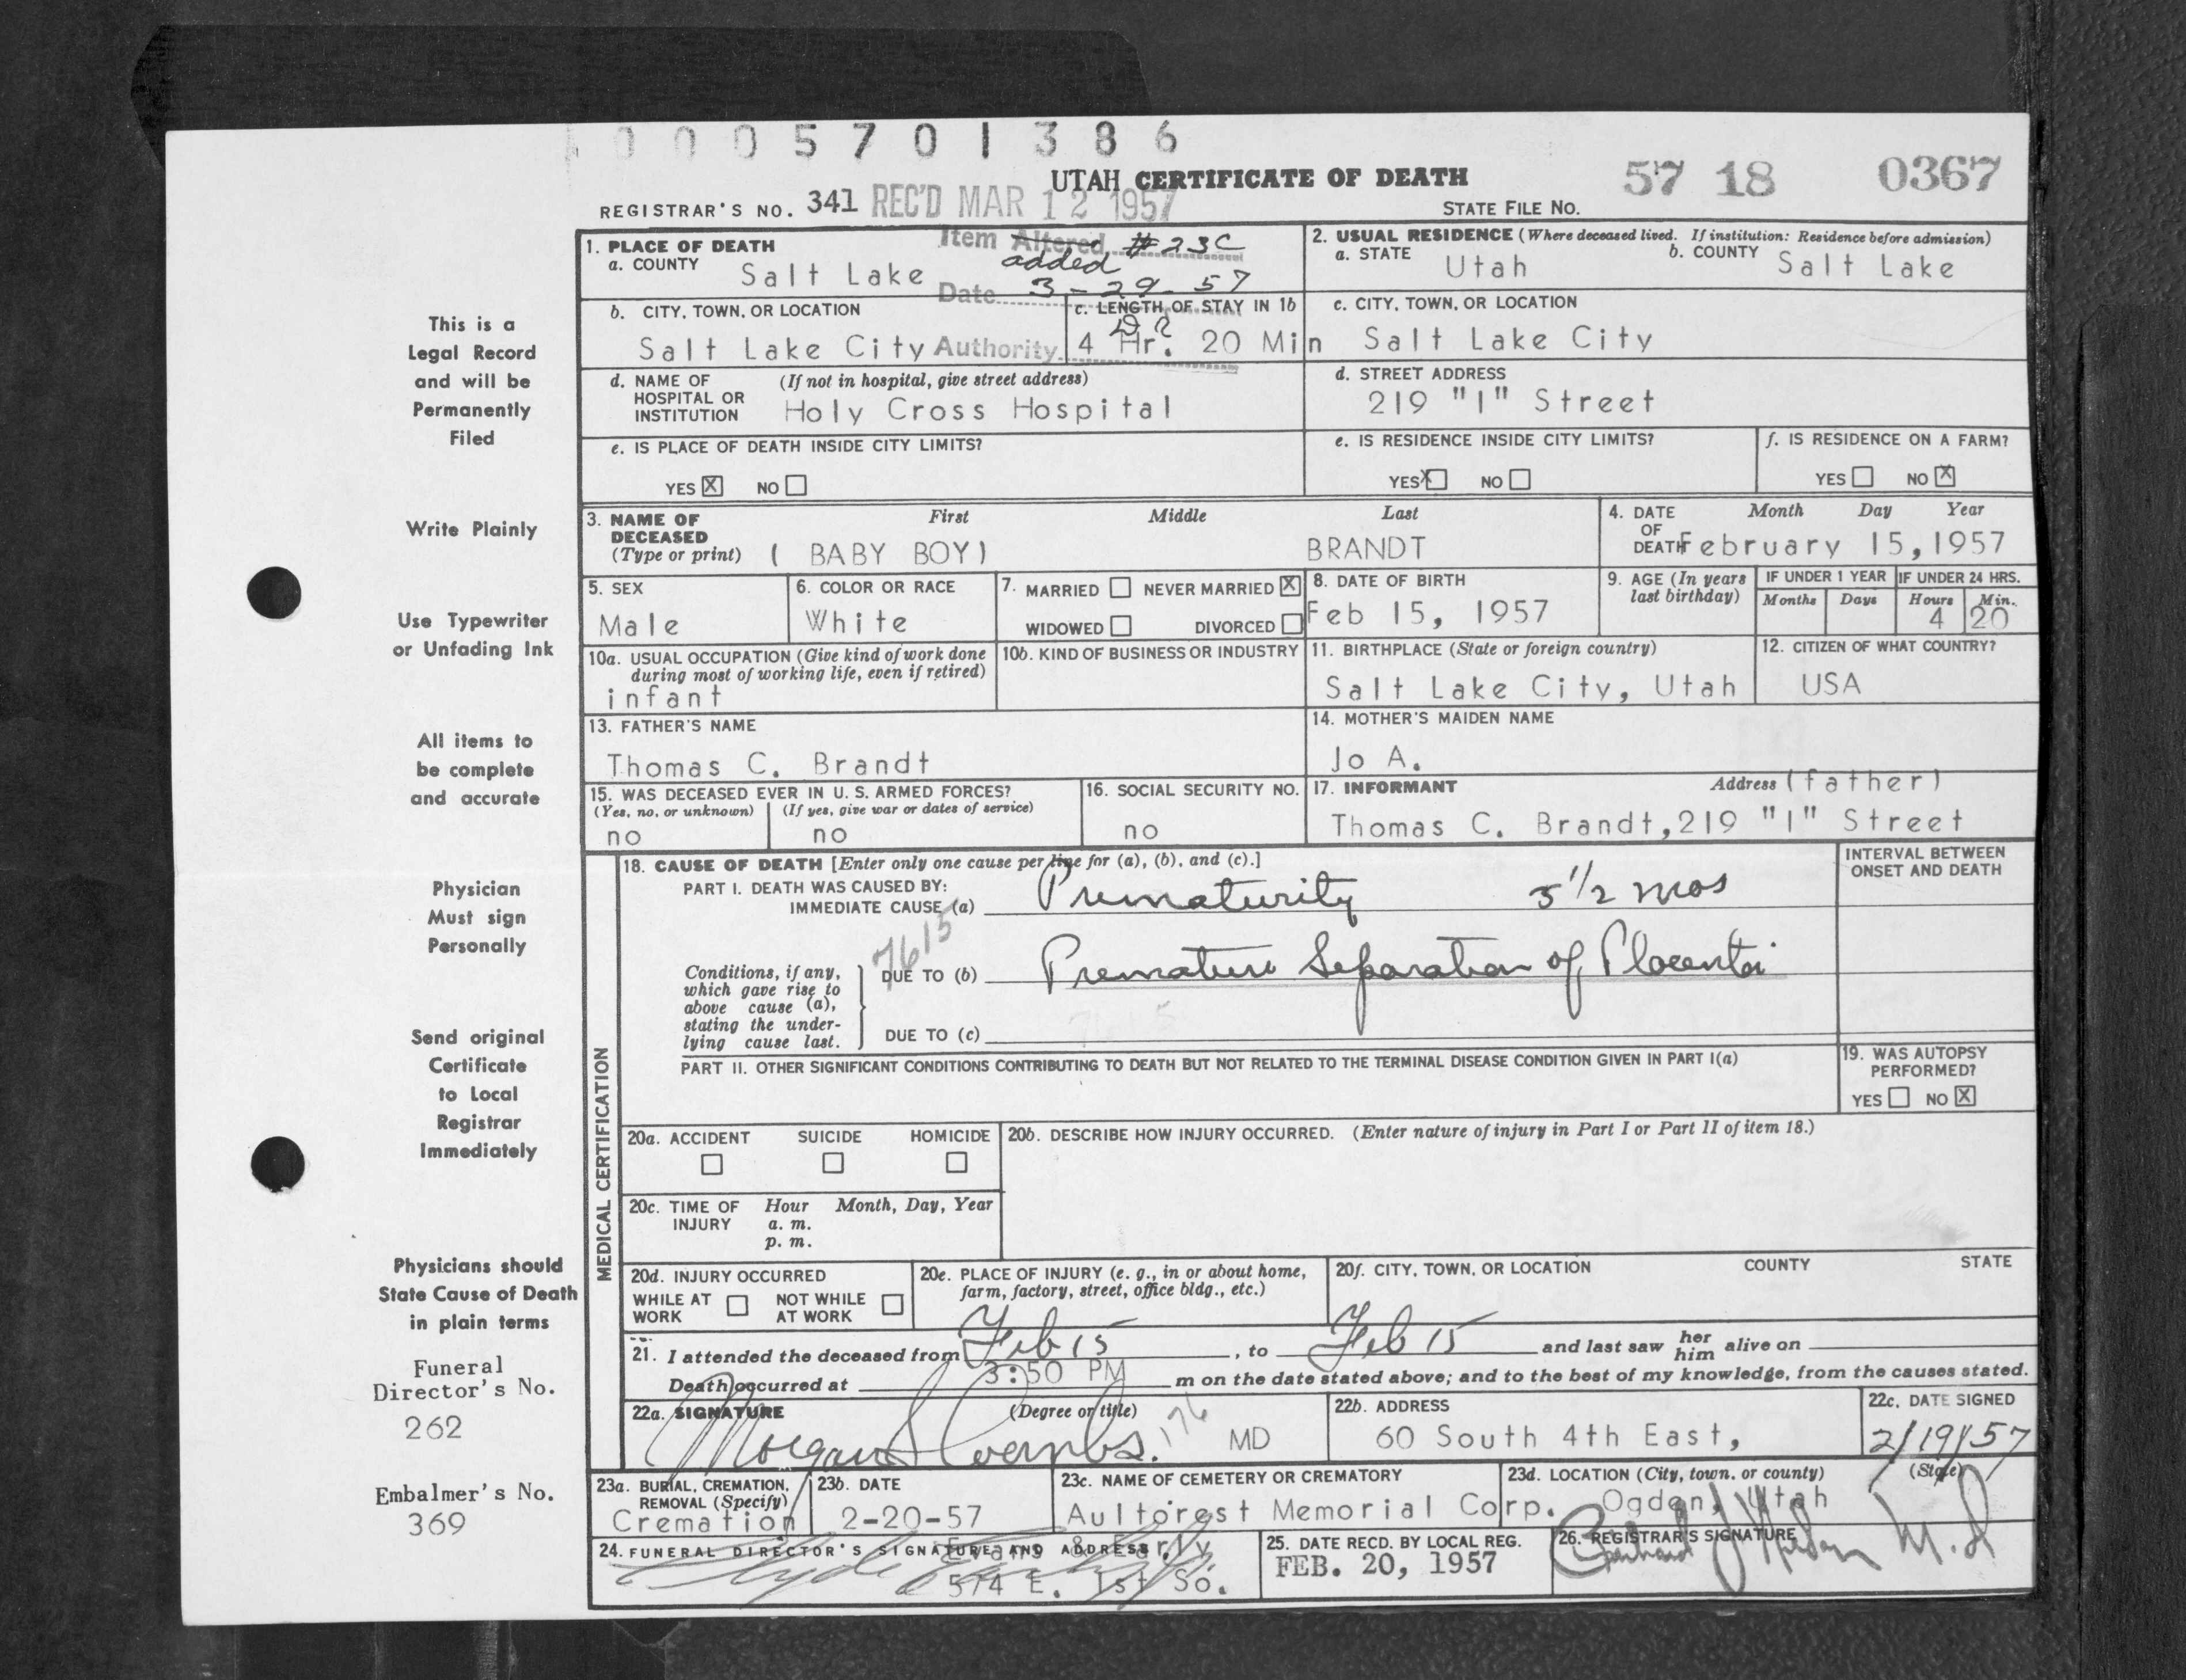 0005701386
UTAH CERTIFICATE OF DEATH
57 18 0367
REGISTRAR'S NO. 341 REC'D MAR 12 1957
STATE FILE NO.
This is a
Legal Record
and will be
Permanently
Filed
Write Plainly
Use Typewriter
or Unfading Ink
All items to
be complete
and accurate
Physician
Must sign
Personally
Send original
Certificate
to Local
Registrar
Immediately
Physicians should
State Cause of Death
in plain terms
Funeral
Director's No.
262
Embalmer's No.
369
1. PLACE OF DEATH
a. COUNTY Salt Lake
Item Altered #23C
added
Date 3-29-57
Authority Dr.
2. USUAL RESIDENCE (Where deceased lived. If institution: Residence before admission)
a. STATE Utah b. COUNTY Salt Lake
b. CITY, TOWN, OR LOCATION
Salt Lake City
c. LENGTH OF STAY IN 1b
4 Hr. 20 Min
c. CITY, TOWN, OR LOCATION
Salt Lake City
d. NAME OF (If not in hospital, give street address)
HOSPITAL OR
INSTITUTION Holy Cross Hospital
d. STREET ADDRESS
219 "I" Street
e. IS PLACE OF DEATH INSIDE CITY LIMITS?
YES X NO
e. IS RESIDENCE INSIDE CITY LIMITS?
YES X NO
f. IS RESIDENCE ON A FARM?
YES NO X
3. NAME OF First Middle Last
DECEASED
(Type or print) ( BABY BOY) BRANDT
4. DATE Month Day Year
OF
DEATH February 15, 1957
5. SEX
Male
6. COLOR OR RACE
White
7. MARRIED NEVER MARRIED X
WIDOWED DIVORCED
8. DATE OF BIRTH
Feb 15, 1957
9. AGE (In years
last birthday)
IF UNDER 1 YEAR IF UNDER 24 HRS.
Months Days Hours Min.
4 20
10a. USUAL OCCUPATION (Give kind of work done
during most of working life, even if retired)
infant
10b. KIND OF BUSINESS OR INDUSTRY
11. BIRTHPLACE (State or foreign country)
Salt Lake City, Utah
12. CITIZEN OF WHAT COUNTRY?
USA
13. FATHER'S NAME
Thomas C. Brandt
14. MOTHER'S MAIDEN NAME
Jo A.
15. WAS DECEASED EVER IN U. S. ARMED FORCES?
(Yes, no, or unknown) (If yes, give war or dates of service)
no no
16. SOCIAL SECURITY NO.
no
17. INFORMANT Address (father)
Thomas C. Brandt, 219 "I" Street
MEDICAL CERTIFICATION
18. CAUSE OF DEATH [Enter only one cause per line for (a), (b), and (c).]
INTERVAL BETWEEN
ONSET AND DEATH
PART I. DEATH WAS CAUSED BY:
IMMEDIATE CAUSE (a) Prematurity 5 1/2 mos
7615
Conditions, if any,
which gave rise to
above cause (a),
stating the under-
lying cause last.
DUE TO (b) Premature Separation of Placenta
DUE TO (c)
PART II. OTHER SIGNIFICANT CONDITIONS CONTRIBUTING TO DEATH BUT NOT RELATED TO THE TERMINAL DISEASE CONDITION GIVEN IN PART I(a)
19. WAS AUTOPSY
PERFORMED?
YES NO X
20a. ACCIDENT SUICIDE HOMICIDE
20b. DESCRIBE HOW INJURY OCCURRED. (Enter nature of injury in Part I or Part II of item 18.)
20c. TIME OF Hour Month, Day, Year
INJURY a. m.
p. m.
20d. INJURY OCCURRED
WHILE AT NOT WHILE
WORK AT WORK
20e. PLACE OF INJURY (e. g., in or about home,
farm, factory, street, office bldg., etc.)
20f. CITY, TOWN, OR LOCATION COUNTY STATE
21. I attended the deceased from Feb 15, to Feb 15 and last saw her him alive on
Death occurred at 3:50 PM m on the date stated above; and to the best of my knowledge, from the causes stated.
22a. SIGNATURE (Degree or title)
Morgan S Coombs. 176 MD
22b. ADDRESS
60 South 4th East,
22c. DATE SIGNED
2/19/57
23a. BURIAL, CREMATION,
REMOVAL (Specify)
Cremation
23b. DATE
2-20-57
23c. NAME OF CEMETERY OR CREMATORY
Aultorest Memorial Corp.
23d. LOCATION (City, town, or county) (State)
Ogden, Utah
24. FUNERAL DIRECTOR'S SIGNATURE AND ADDRESS
Evans & Early
574 E. 1st So.
25. DATE RECD. BY LOCAL REG.
FEB. 20, 1957
26. REGISTRAR'S SIGNATURE
M.D